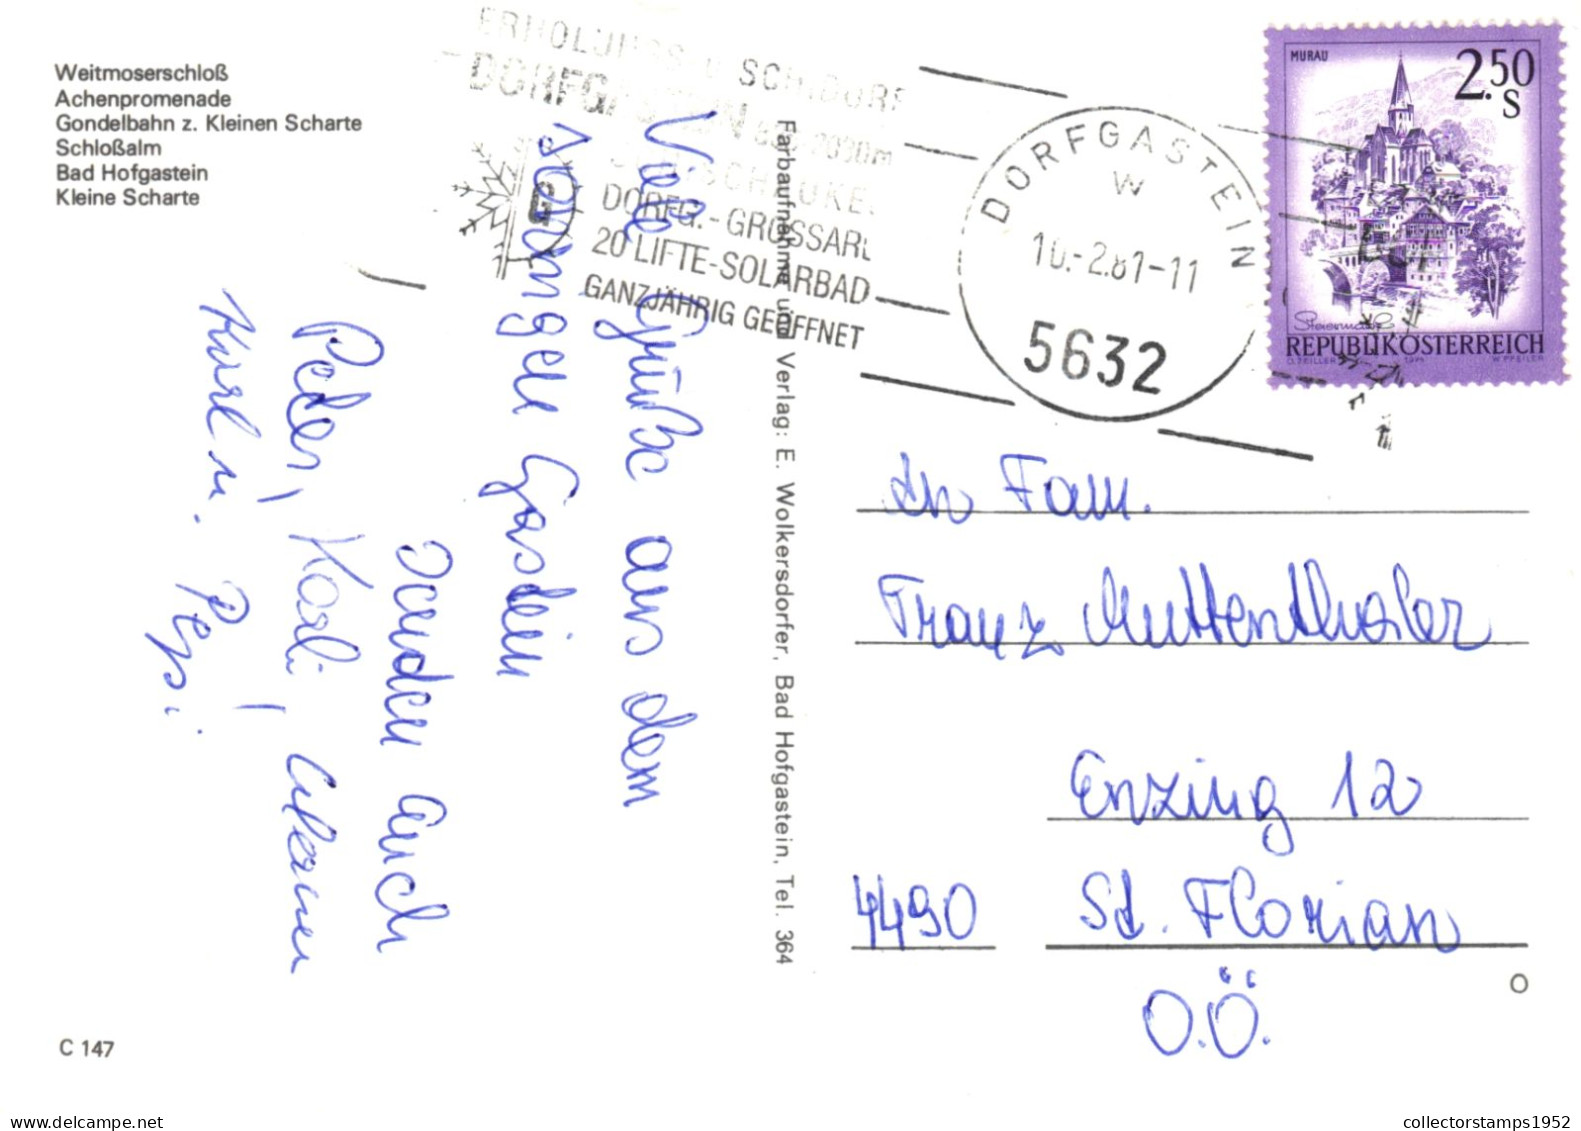 Weitmoserschloß
Achenpromenade
Gondelbahn z. Kleinen Scharte
Schloßalm
Bad Hofgastein
Kleine Scharte
ERHOLUNGS- u. SCHIDORF
DORFGASTEIN 2090m
SCHISCHAUKEL
DORFG.-GROSSARL
20 LIFTE-SOLARBAD
GANZJÄHRIG GEÖFFNET
DORFGASTEIN
W
10.-2.81-11
5632
MURAU
2.50
S
Steiermark
REPUBLIK ÖSTERREICH
O. ZEILLER 1974 W. PFEILER
Viele Grüße aus dem
sonnigen Gastein
senden Euch
Peter, Karli,
Karl u. Pepi
Farbaufnahme und Verlag: E. Wolkersdorfer, Bad Hofgastein, Tel. 364
An Fam.
Franz Muttenthaler
Enzing 12
4490 St. Florian
O.Ö.
C 147
collectorstamps1952